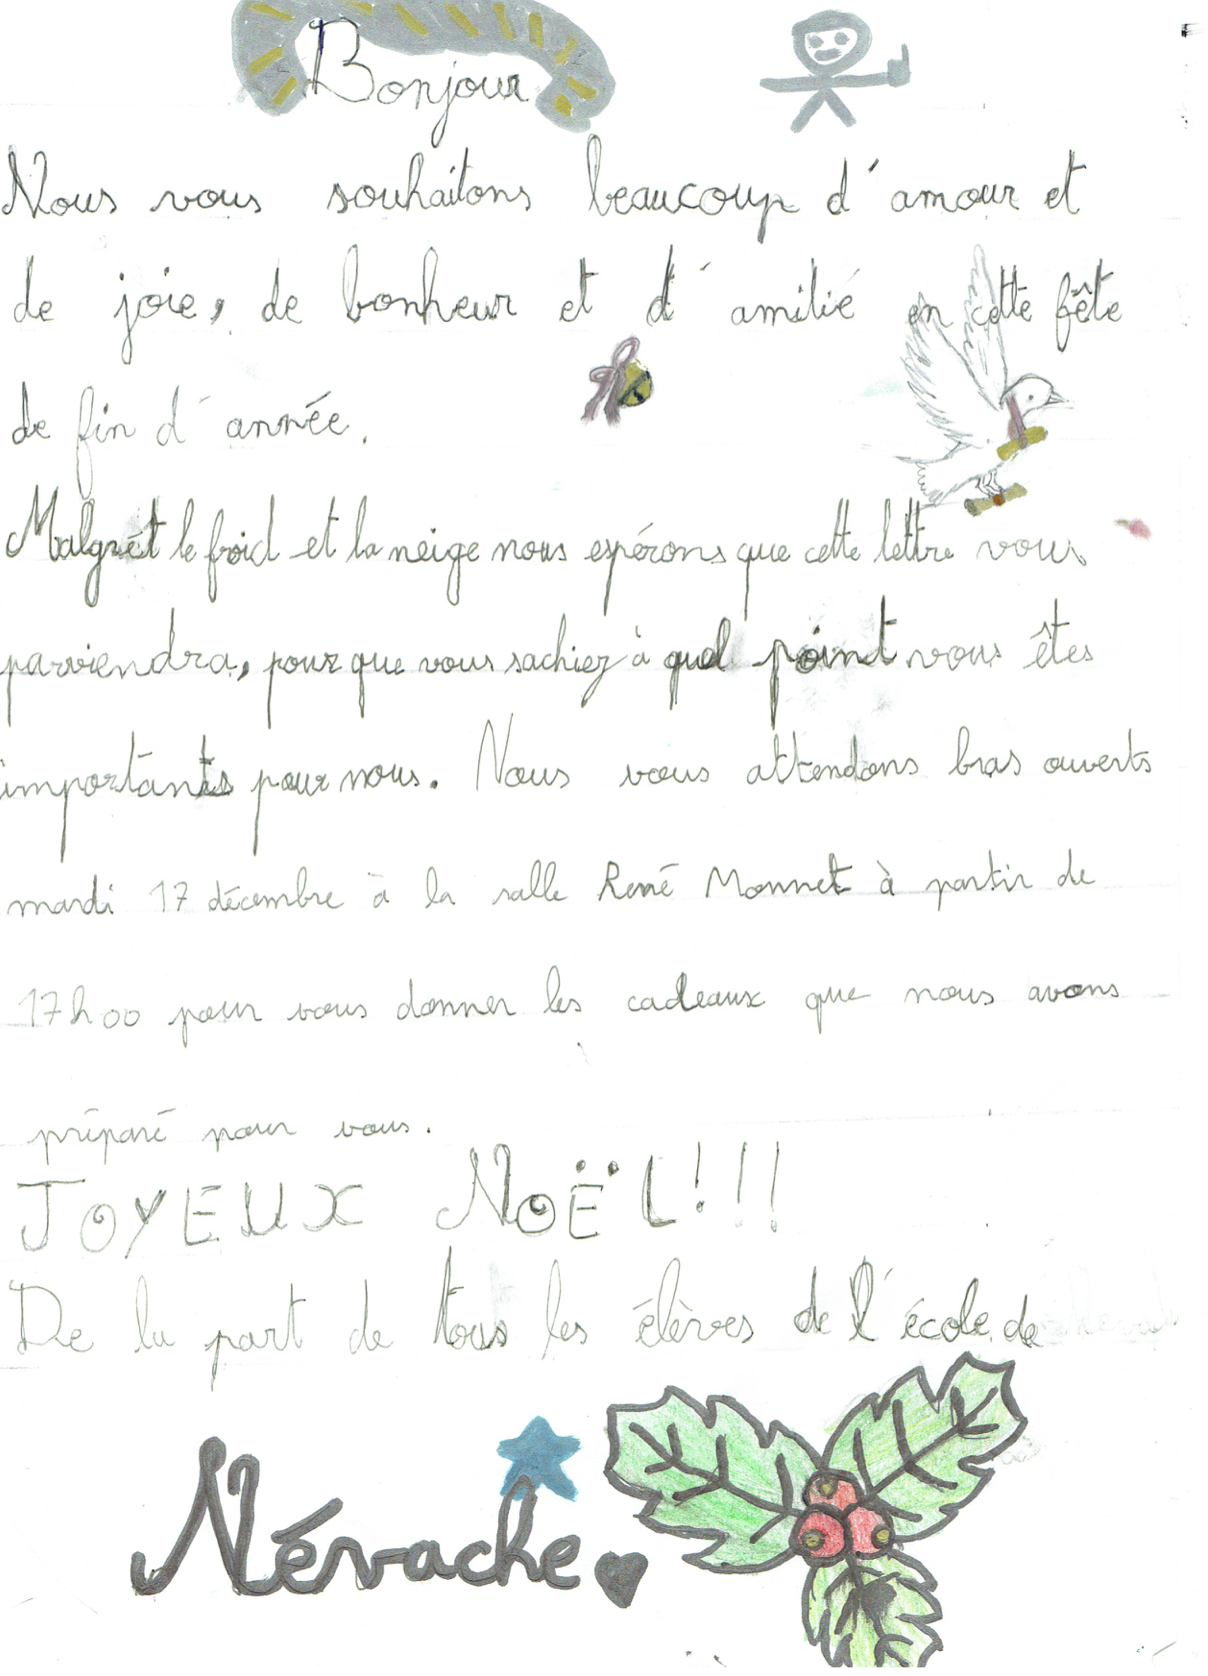 Bonjour
Nous vous souhaitons beaucoup d'amour et
de joie, de bonheur et d'amitié en cette fête
de fin d'année.
Malgrét le froid et la neige nous espérons que cette lettre vous
parviendra, pour que vous sachiez à quel point vous êtes
importants pour nous. Nous vous attendons bras ouverts
mardi 17 décembre à la salle René Monnet à partir de
17h00 pour vous donner les cadeaux que nous avons
préparé pour vous.
JOYEUX NOËL!!!
De la part de tous les élèves de l'école de
Névache